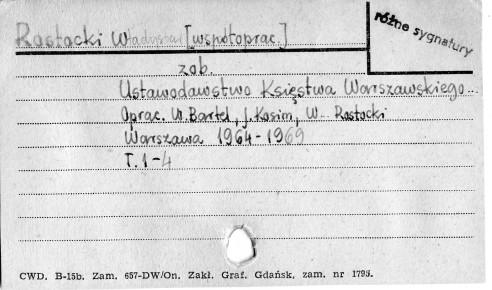 Rostocki Władysław [współoprac.]
różne sygnatury
zob.
Ustawodawstwo Księstwa Warszawskiego...
Oprac. W. Bartel, J. Kosim, W. Rostocki
Warszawa 1964-1969
T. 1-4
CWD. B-15b. Zam. 657-DW/On. Zakł. Graf. Gdańsk, zam. nr 1795.